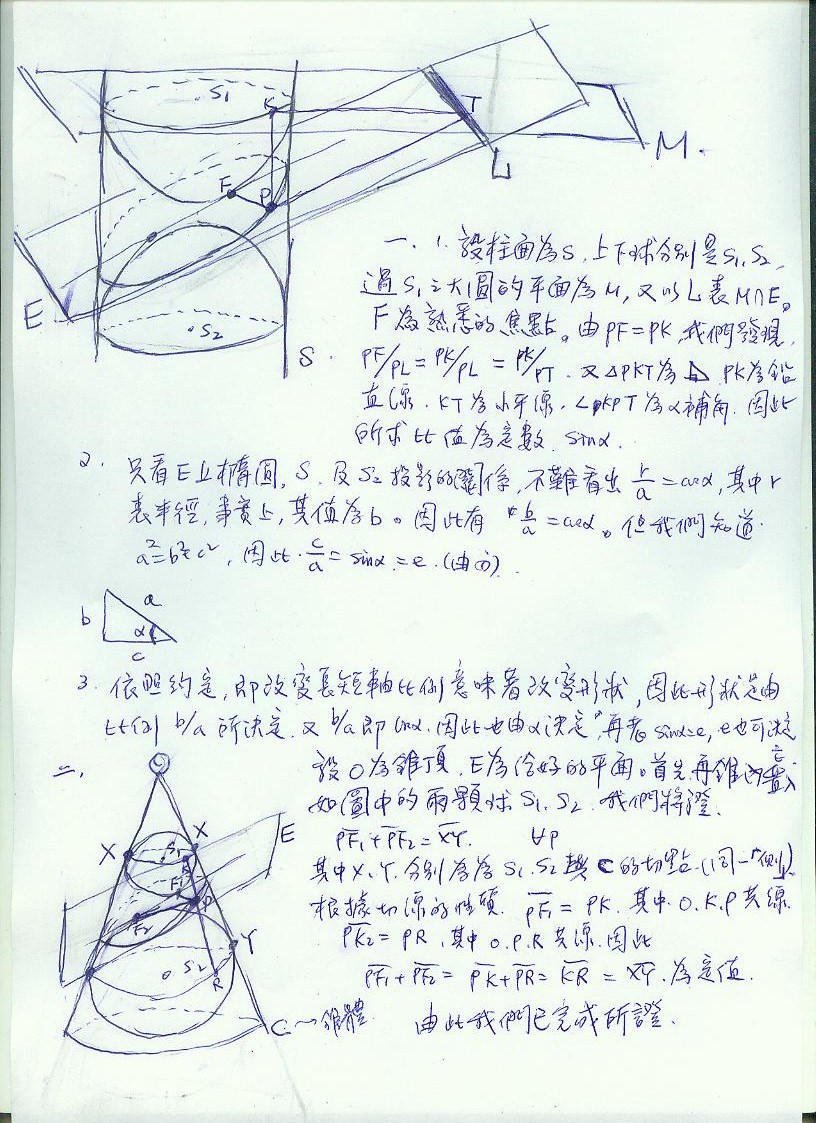 S1
K
T
M.
L
F
P
E
S2
S
一、1. 設柱面為S,上下球分別是S1,S2,
過S1之大圓的平面為M,又以L表M∩E。
F為熟悉的焦點。由PF=PK,我們發現,
PF/PL = PK/PL = PK/PT. 又△PKT為⊿ PK為鉛
直線. KT為水平線. ∠KPT為α補角. 因此
所求比值為定數 sinα.
2. 只看E上橢圓,S 及S2投影的關係,不難看出 r/a = cosα,其中r
表半徑,事實上,其值為b。因此有 b/a = cosα。但我們知道
a²=b²+c²,因此 c/a = sinα = e. (由①).
a
b
α
c
3. 依照約定,即改變長短軸比例意味著改變形狀,因此形狀是由
比例 b/a 所決定. 又 b/a 即 cosα. 因此也由α決定,再者 sinα=e, e也可決定
二、
設O為錐頂,E為給好的平面。首先再錐內置入
如圖中的兩顆球 S1, S2. 我們將證.
PF1+PF2=XY. ∀P
其中X、Y. 分別為為S1, S2與C的切點. (同一側)
根據切線的性質. PF1 = PK. 其中 O.K.P共線
PK2 = PR,其中 O.P.R共線. 因此
PF1+PF2= PK+PR= KR = XY. 為定值.
由此我們已完成所證.
X
X
S1
E
K
F1
P
F2
Y
S2
R
C~錐體